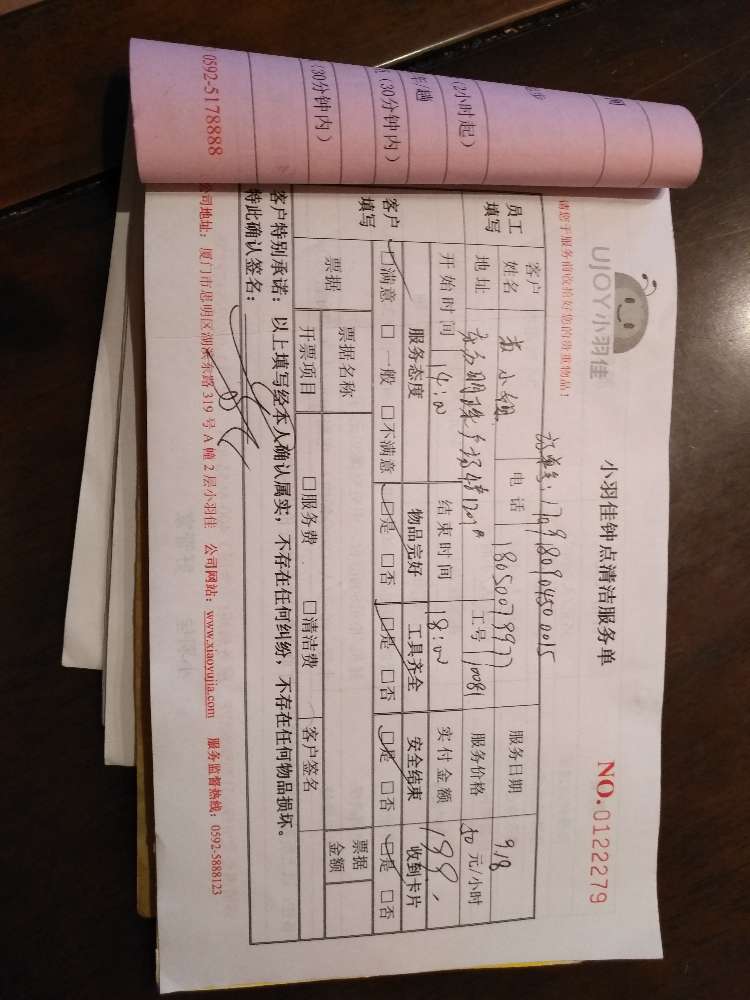 则
步
(2小时起)
车/趟
点(30分钟内)
(30分钟内)
0592-5178888
UJOY小羽佳
小羽佳钟点清洁服务单
NO.0122279
请您于服务前收拾好您的贵重物品!
订单号:
员工填写
客户姓名
小姐
电话
18050079977
服务日期
9/8
地址
明珠广场
工号
10081
服务价格
50 元/小时
开始时间
14:00
结束时间
18:00
实付金额
199
客户填写
服务态度
物品完好
工具齐全
安全结束
收到卡片
□满意 □一般 □不满意
□是 □否
□是 □否
□是 □否
□是 □否
票据
票据名称
票据金额
开票项目
□服务费 □清洁费
客户签名
客户特别承诺:以上填写经本人确认属实,不存在任何纠纷,不存在任何物品损坏。
特此确认签名:
公司地址:厦门市思明区湖滨东路 319 号 A 幢 2 层小羽佳 公司网站:www.xiaoyujia.com 服务监督热线:0592-5888123